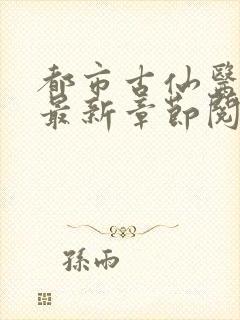 都市古仙醫
最新章節閱
孫雨